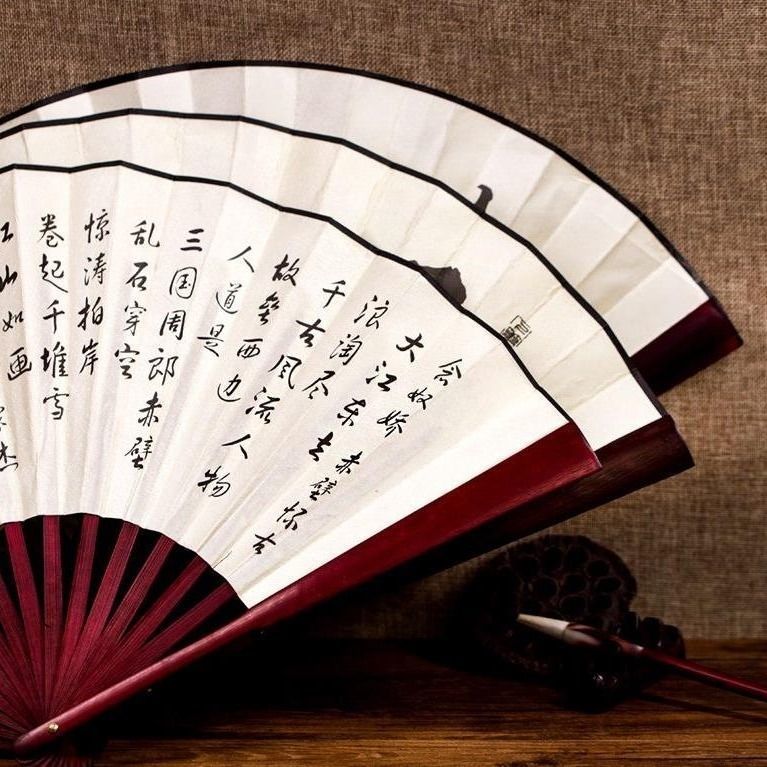 念奴娇 赤壁怀古
大江东去
浪淘尽
千古风流人物
故垒西边
人道是
三国周郎赤壁
乱石穿空
惊涛拍岸
卷起千堆雪
江山如画
杰